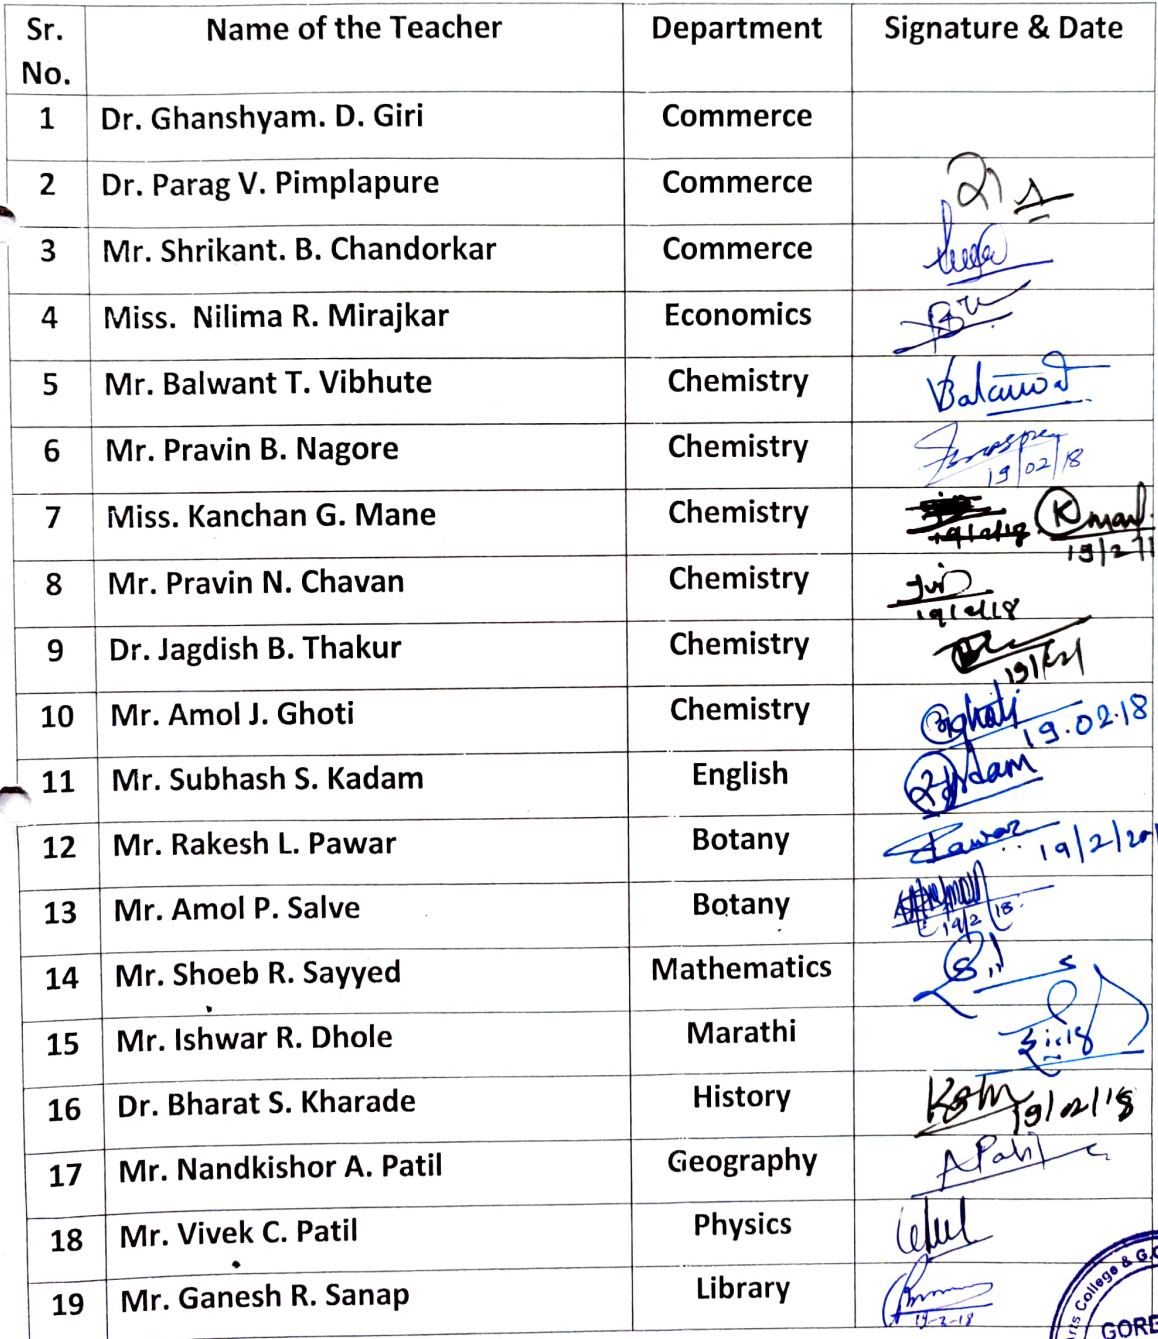 Sr. No. Name of the Teacher Department Signature & Date
1 Dr. Ghanshyam. D. Giri Commerce
2 Dr. Parag V. Pimplapure Commerce
3 Mr. Shrikant. B. Chandorkar Commerce
4 Miss. Nilima R. Mirajkar Economics
5 Mr. Balwant T. Vibhute Chemistry
6 Mr. Pravin B. Nagore Chemistry 19/02/18
7 Miss. Kanchan G. Mane Chemistry 19/2/18 K mane 19/2/1
8 Mr. Pravin N. Chavan Chemistry 19/2/18
9 Dr. Jagdish B. Thakur Chemistry
10 Mr. Amol J. Ghoti Chemistry aghoti 19.02.18
11 Mr. Subhash S. Kadam English
12 Mr. Rakesh L. Pawar Botany Pawar 19/2/201
13 Mr. Amol P. Salve Botany 19/2/18
14 Mr. Shoeb R. Sayyed Mathematics
15 Mr. Ishwar R. Dhole Marathi
16 Dr. Bharat S. Kharade History 19/02/18
17 Mr. Nandkishor A. Patil Geography APatil
18 Mr. Vivek C. Patil Physics
19 Mr. Ganesh R. Sanap Library 19-2-18
College & G.C
GORE